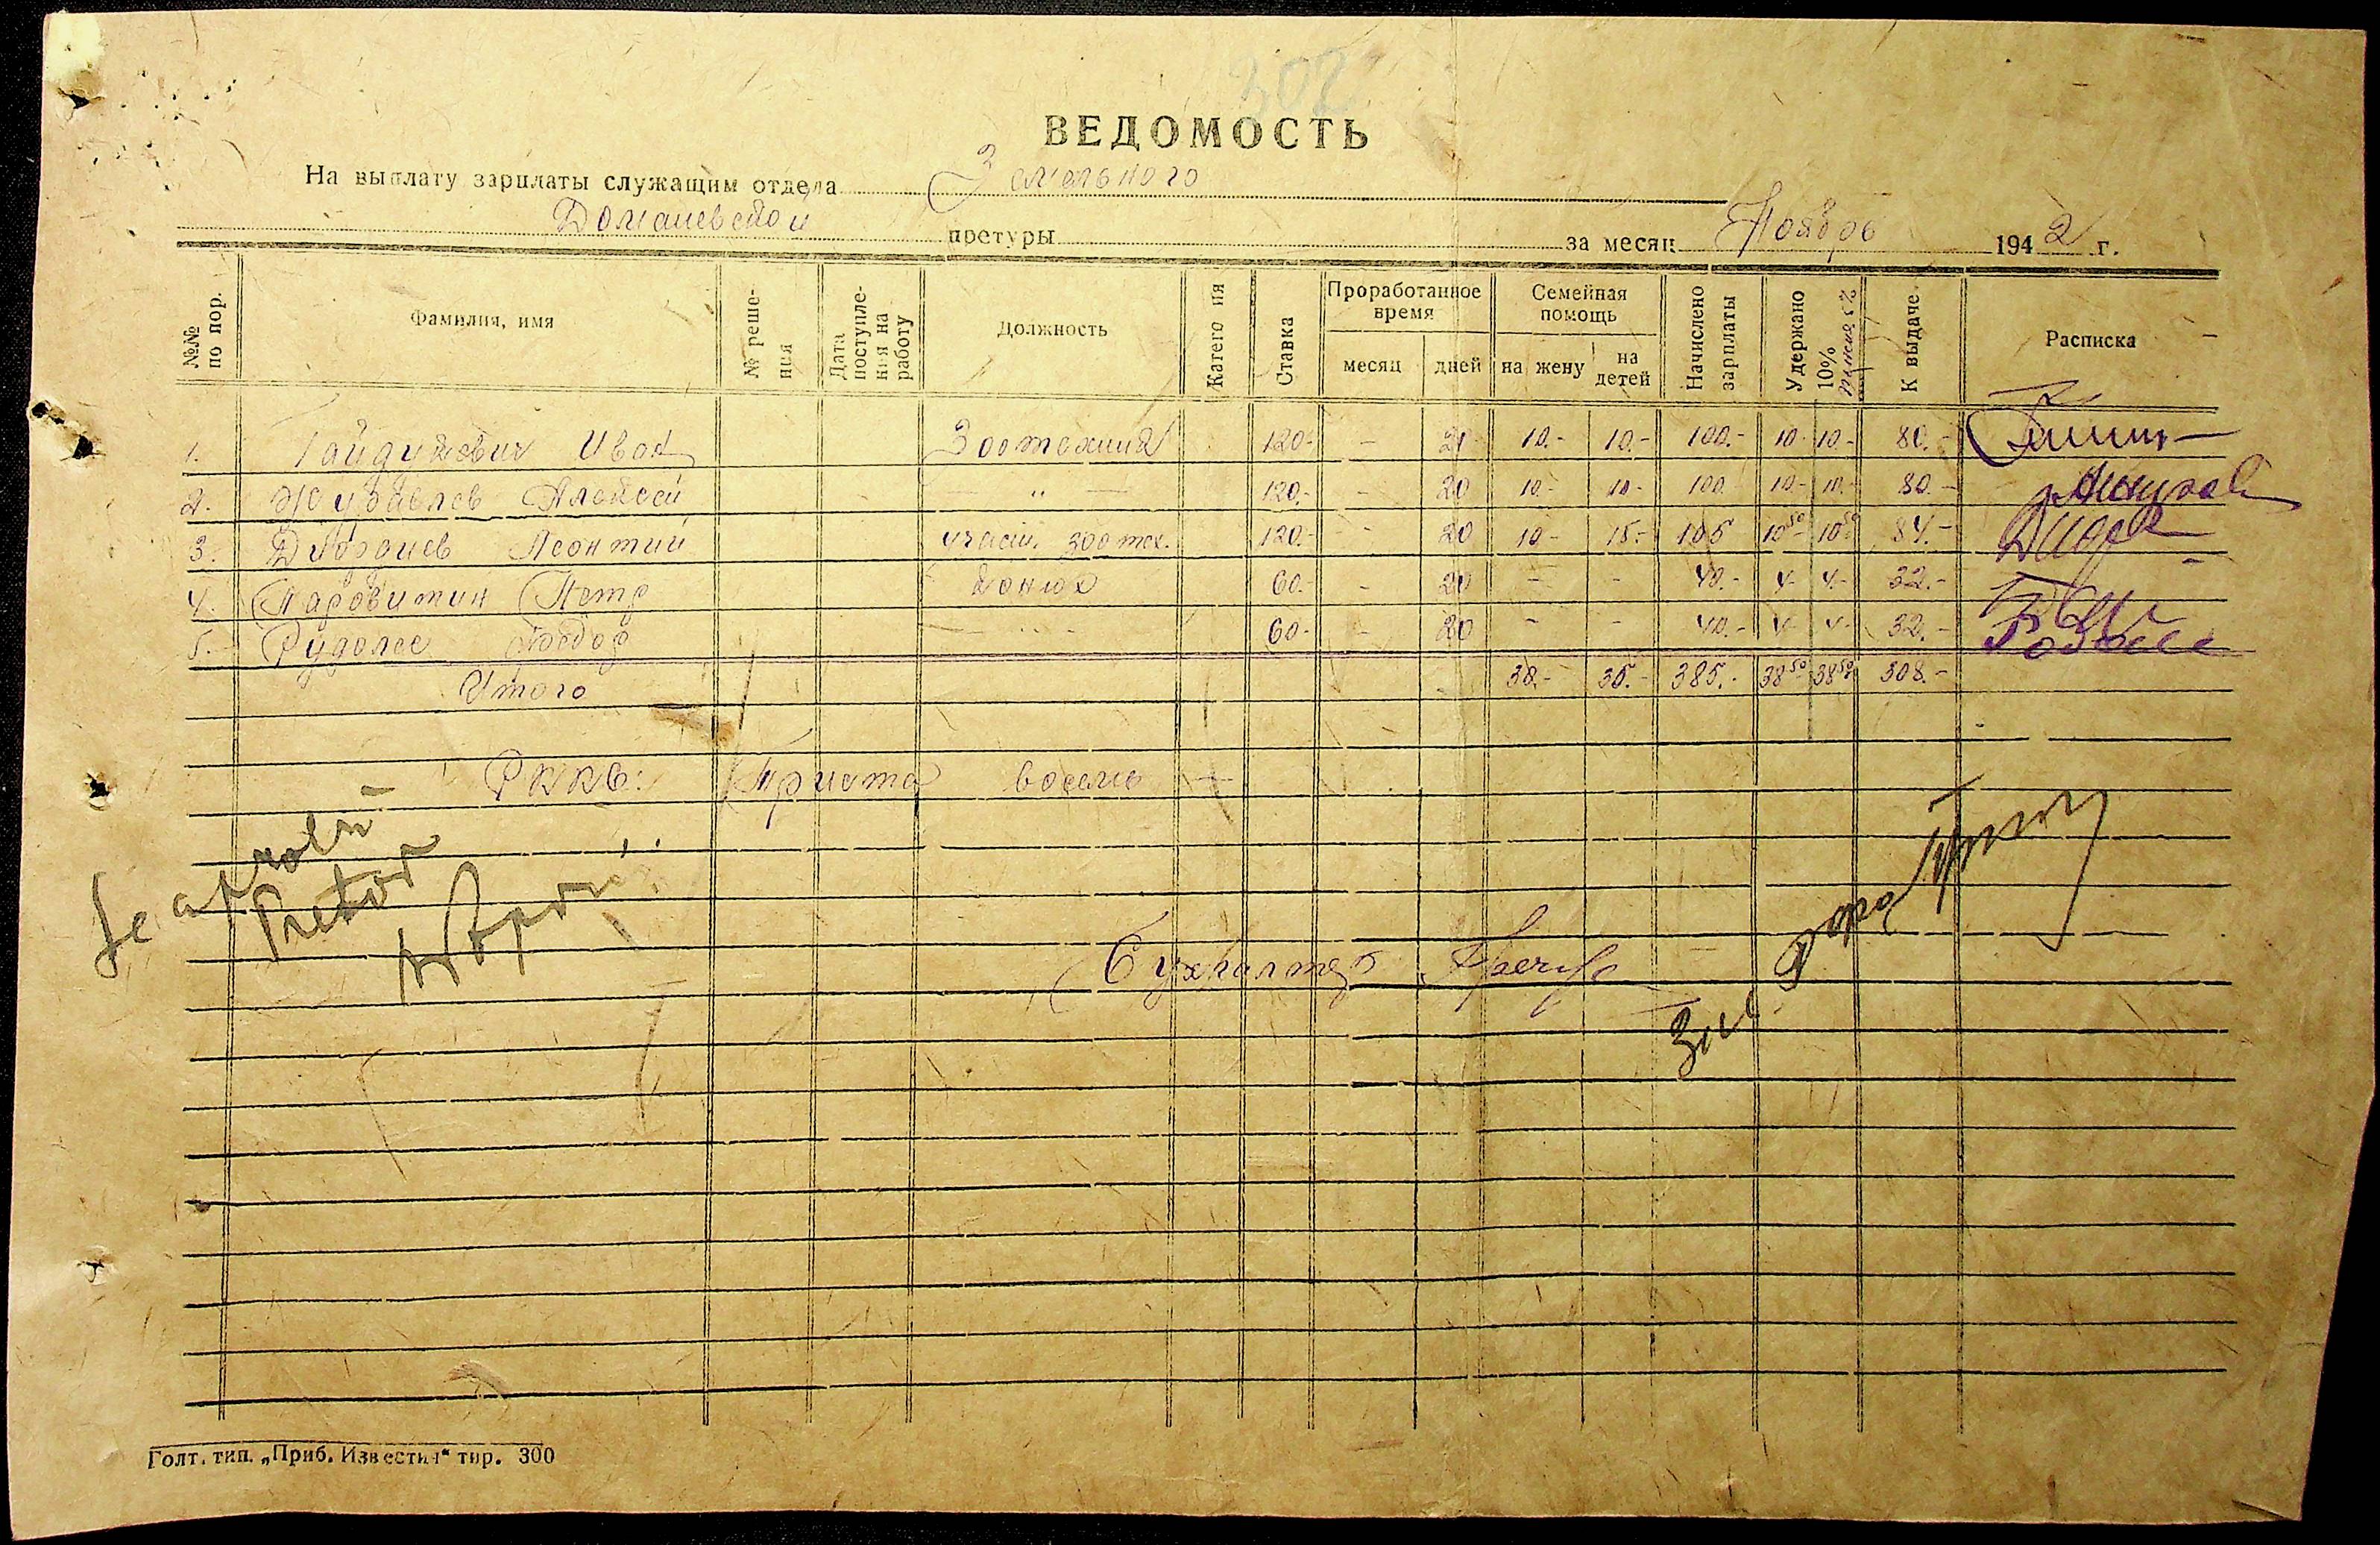 302
ВЕДОМОСТЬ
На выплату зарплаты служащим отдела Земельного
Доманевской претуры за месяц Ноябрь 1942 г.
№№ по пор. Фамилия, имя № реше- ния Дата поступле- ния на работу Должность Катего ия Ставка Проработанное время месяц дней Семейная помощь на жену на детей Начислено зарплаты Удержано 10% К выдаче Расписка
1. Гайдукевич Иван Зоотехник 120.- - 20 10.- 10.- 100.- 10.- 10.- 80.-
2. Журавлев Алексей — " — 120.- - 20 10.- 10.- 100 10.- 10.- 80.-
3. Дибрдиев Леонтий участ. зоотех. 120.- - 20 10.- 15.- 105 10 50 10 50 84.-
4. Паровитин Петр конюх 60.- - 20 - - 40.- 4.- 4.- 32.-
5. Рудолес Федор - " - 60.- - 20 - - 40.- 4.- 4.- 32.-
Итого 30.- 35.- 385.- 38 50 38 50 308.-
РККС: Триста восемь —
Se aprobă
Pretor
Бухгалтер
Голт. тип. „Приб. Известия" тир. 300